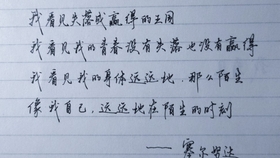 我看见失落或赢得的王国
我看见我的青春没有失落也没有赢得
我看见我的身体远远地，那么陌生
像我自己，远远地在陌生的时刻
——塞尔努达